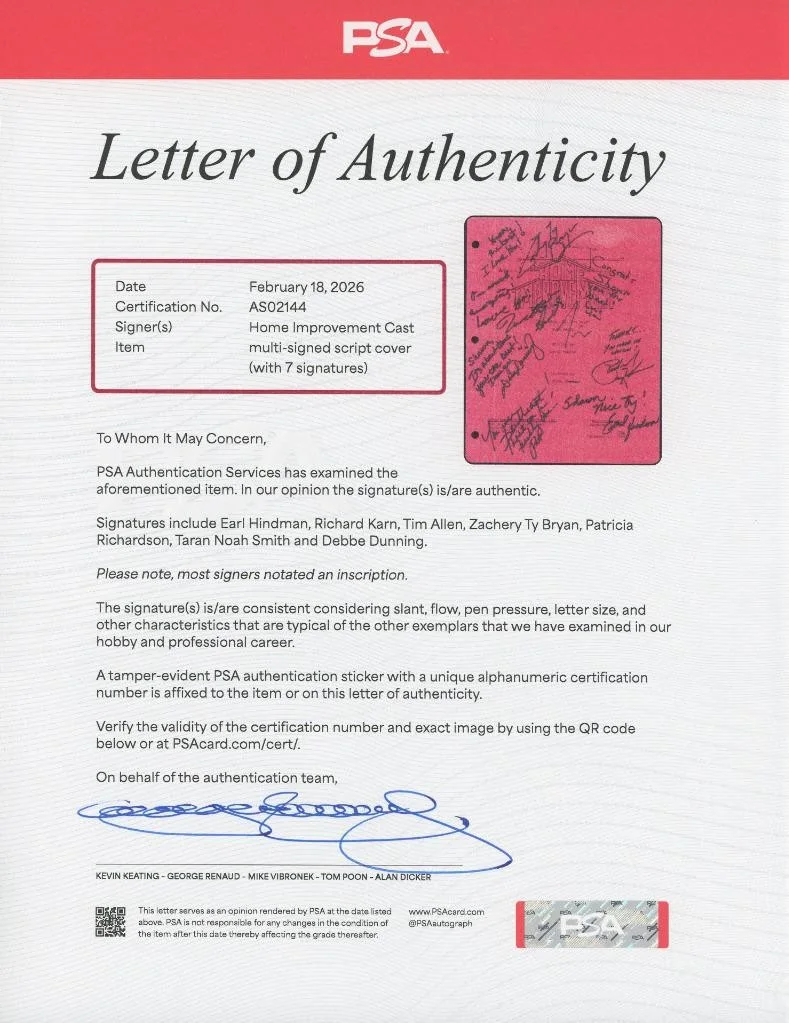 PSA
Letter of Authenticity
Date February 18, 2026
Certification No. AS02144
Signer(s) Home Improvement Cast
Item multi-signed script cover
(with 7 signatures)
To Whom It May Concern,
PSA Authentication Services has examined the
aforementioned item. In our opinion the signature(s) is/are authentic.
Signatures include Earl Hindman, Richard Karn, Tim Allen, Zachery Ty Bryan, Patricia
Richardson, Taran Noah Smith and Debbe Dunning.
Please note, most signers notated an inscription.
The signature(s) is/are consistent considering slant, flow, pen pressure, letter size, and
other characteristics that are typical of the other exemplars that we have examined in our
hobby and professional career.
A tamper-evident PSA authentication sticker with a unique alphanumeric certification
number is affixed to the item or on this letter of authenticity.
Verify the validity of the certification number and exact image by using the QR code
below or at PSAcard.com/cert/.
On behalf of the authentication team,
KEVIN KEATING - GEORGE RENAUD - MIKE VIBRONEK - TOM POON - ALAN DICKER
This letter serves as an opinion rendered by PSA at the date listed
above. PSA is not responsible for any changes in the condition of
the item after this date thereby affecting the grade thereafter.
www.PSAcard.com
@PSAautograph
PSA
I Love You!
Love
Shawn
Nice Try!